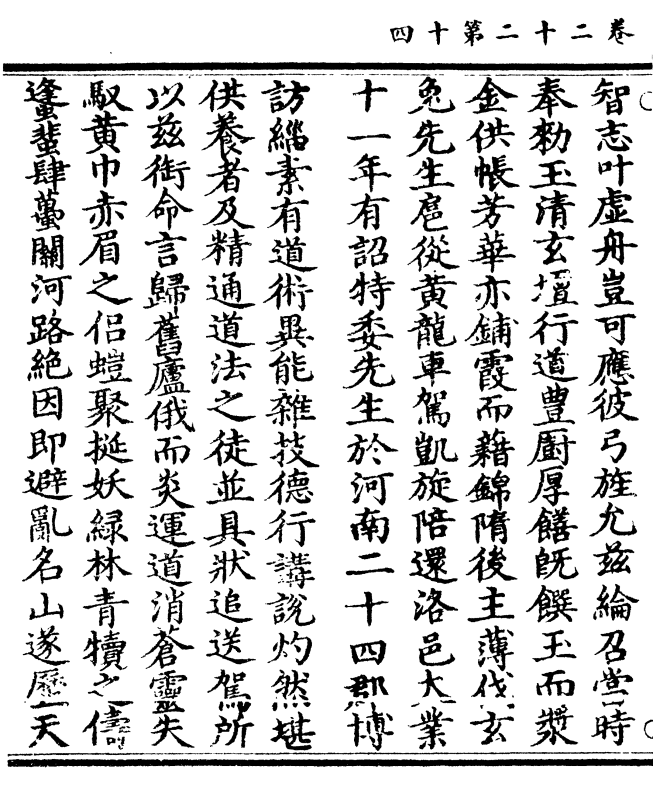 卷二十二第十四
智志叶虛舟豈可應彼弓旌允兹綸召當時
奉勑玉清玄壇行道豊廚厚饍旣饌玉而漿
金供帳芳華亦鋪霞而藉錦隋後主薄伐玄
兔先生扈從黃龍車駕凱旋陪還洛邑大業
十一年有詔特委先生於河南二十四郡博
訪緇素有道術異能雜技德行講說灼然堪
供養者及精通道法之徒並具狀追送駕所
以兹銜命言歸舊廬俄而炎運道消蒼靈失
馭黃巾赤眉之侶螘聚挻妖緑林青犢之儔
蜂蠆肆蠆關河路絶因即避亂名山遂歷天